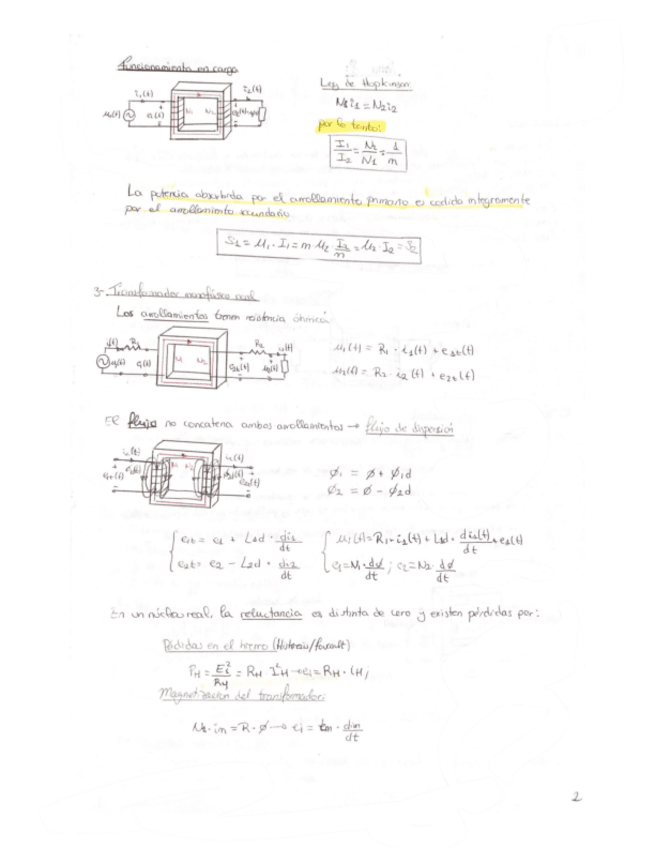 Funcionamiento en carga
i1(t) i2(t)
u1(t) e1(t) N1 N2
Ley de Hopkinson:
N1i1 = N2i2
por lo tanto:
I1/I2 = N2/N1 = 1/m
La potencia absorbida por el arrollamiento primario es cedida integramente
por el arrollamiento secundario
S1 = U1 · I1 = m U2 · I2/m = U2 · I2 = S2
3- Transformador monofásico real
Los arrollamientos tienen resistencia óhmica
R1 R2
u1(t) = R1 · i1(t) + e1t(t)
u2(t) = R2 · i2(t) + e2t(t)
El flujo no concatena ambos arrollamientos → flujo de dispersión
ø1 = ø + ø1d
ø2 = ø - ø2d
e1t = e1 + L1d · di1/dt
u1(t) = R1 · i1(t) + L1d · di1(t)/dt + e1(t)
e2t = e2 - L2d · di2/dt
e1 = N1 · dø/dt ; e2 = N2 · dø/dt
En un núcleo real, la reluctancia es distinta de cero y existen pérdidas por:
Pérdidas en el hierro (Histeresis/foucault)
PH = E1²/RH = RH I²H → e1 = RH · iH;
Magnetización del transformador:
= R · ø → e1 = Lm · dim/dt
2